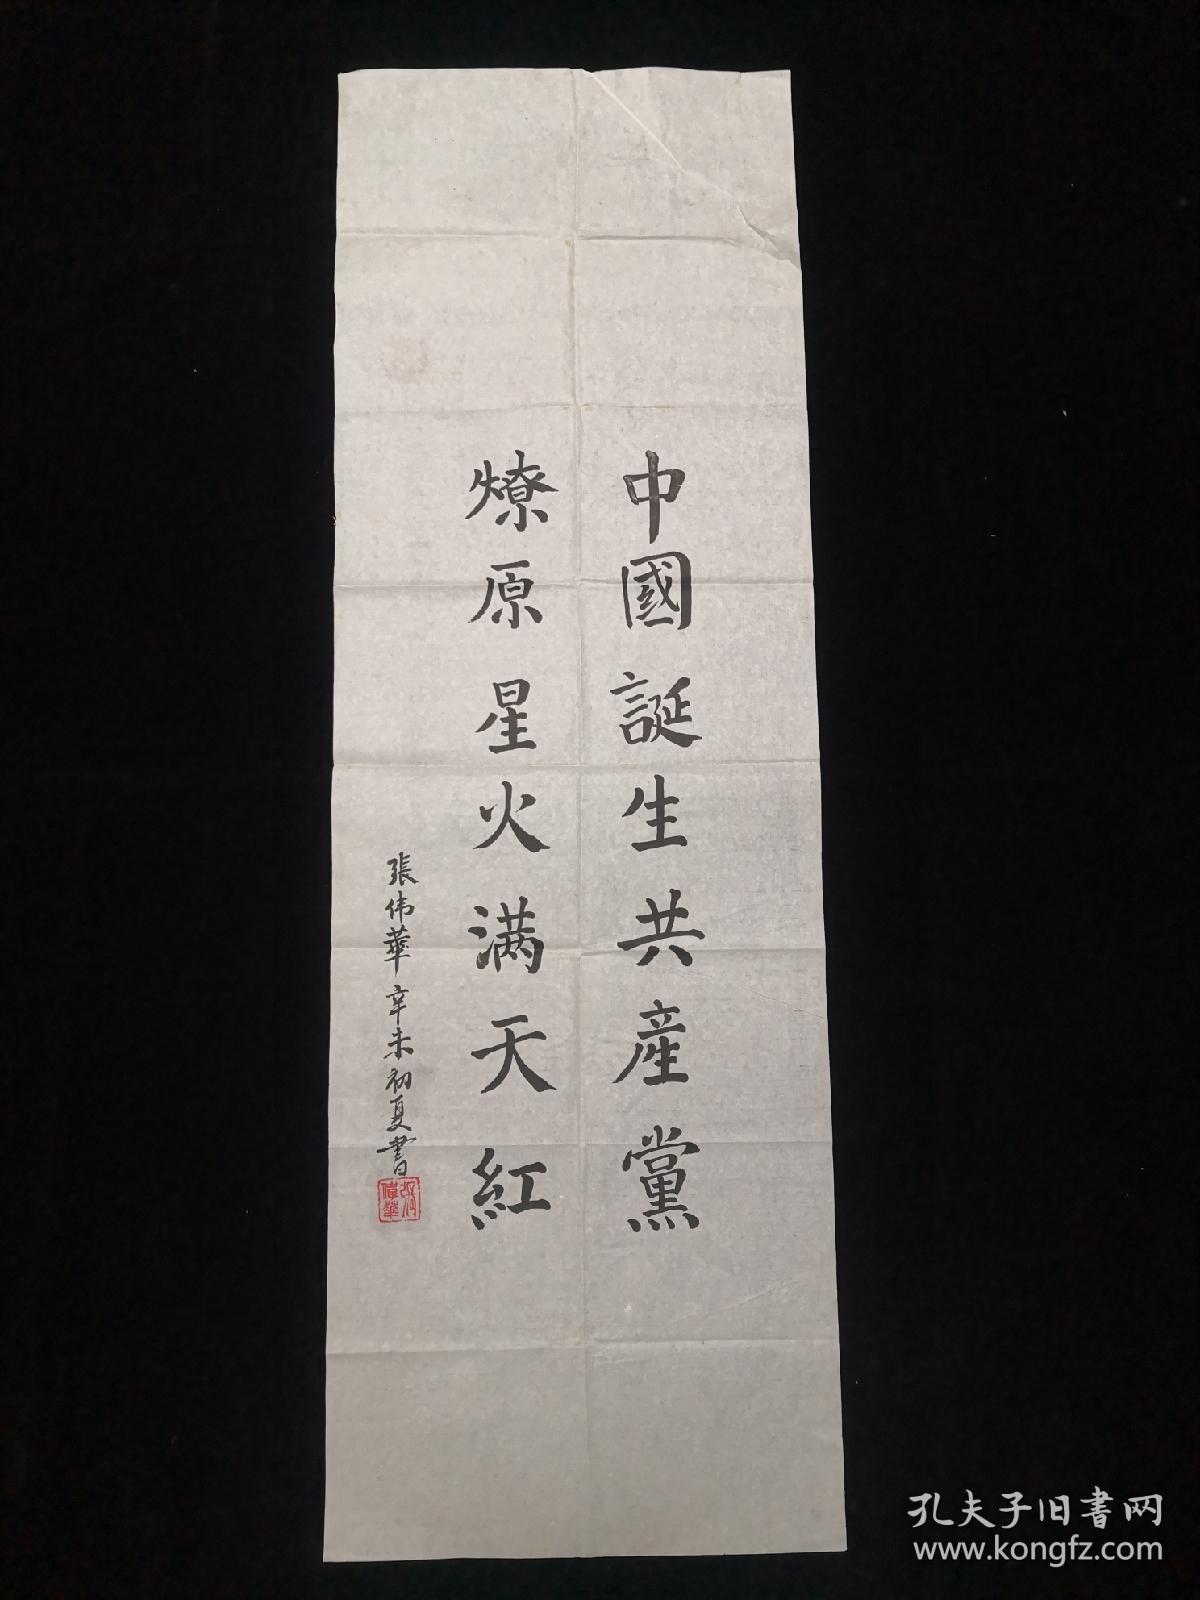 中國誕生共産黨
燎原星火满天紅
張伟華辛未初夏書
孔夫子旧書网
www.kongfz.com